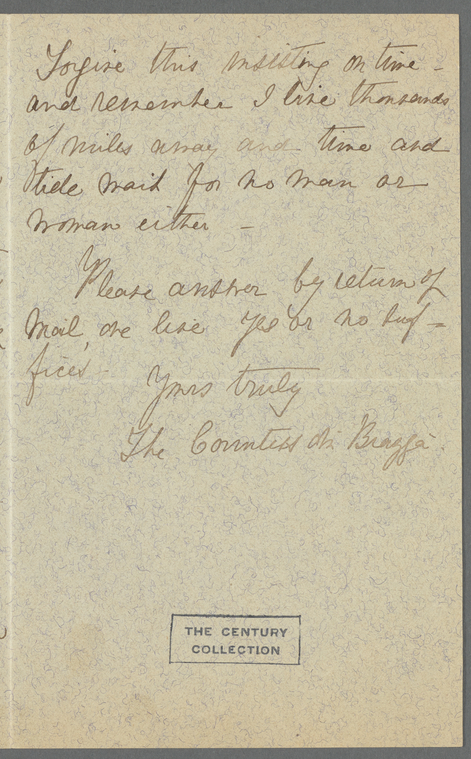 Forgive this insisting on time -
and remember I live thousands
of miles away and time and
tide wait for no man or
woman either -
Please answer by return of
Mail, one line yes or no suf-
fices -
Yours truly
The Countess di Brazzà
THE CENTURY
COLLECTION